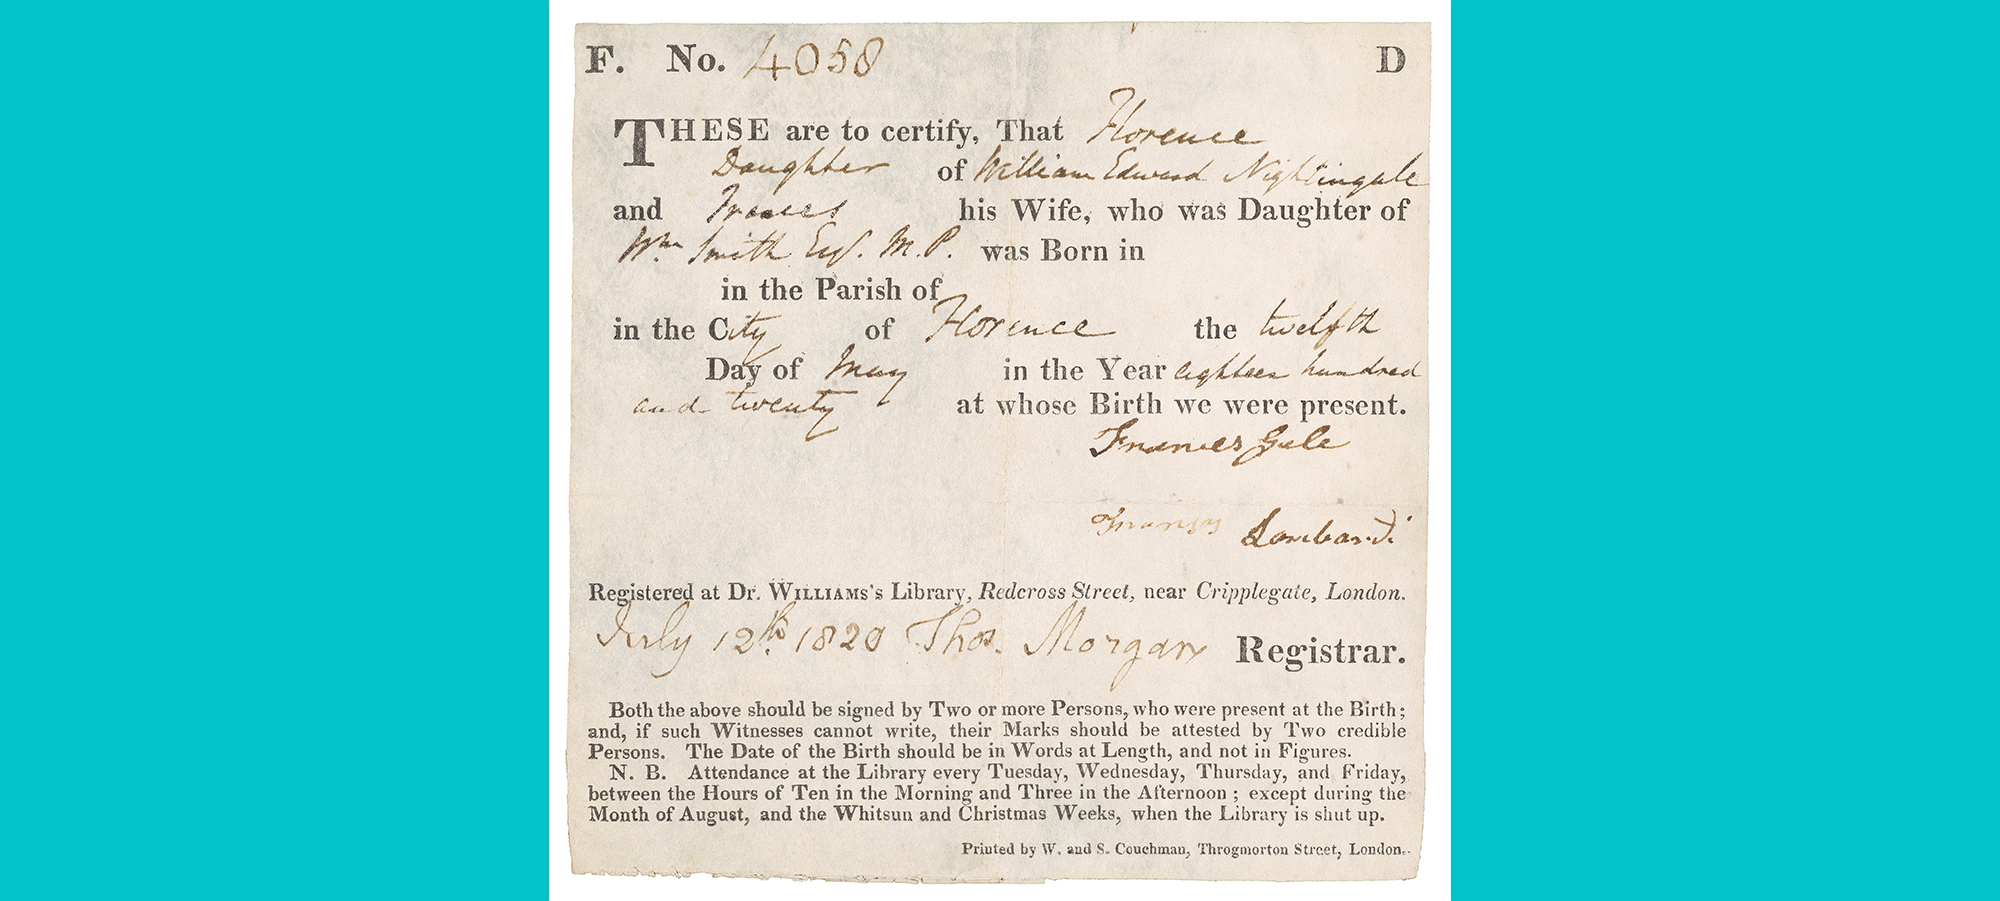 F. No. 4058 D
THESE are to certify, That Florence
Daughter of William Edward Nightingale
and Frances his Wife, who was Daughter of
Wm Smith Esq. M.P. was Born in
in the Parish of
in the City of Florence the twelfth
Day of May in the Year eighteen hundred
and twenty at whose Birth we were present.
Frances Gale
Lombardi
Registered at Dr. WILLIAMS's Library, Redcross Street, near Cripplegate, London.
July 12th. 1820 Thos. Morgan Registrar.
Both the above should be signed by Two or more Persons, who were present at the Birth;
and, if such Witnesses cannot write, their Marks should be attested by Two credible
Persons. The Date of the Birth should be in Words at Length, and not in Figures.
N. B. Attendance at the Library every Tuesday, Wednesday, Thursday, and Friday,
between the Hours of Ten in the Morning and Three in the Afternoon; except during the
Month of August, and the Whitsun and Christmas Weeks, when the Library is shut up.
Printed by W. and S. Couchman, Throgmorton Street, London.